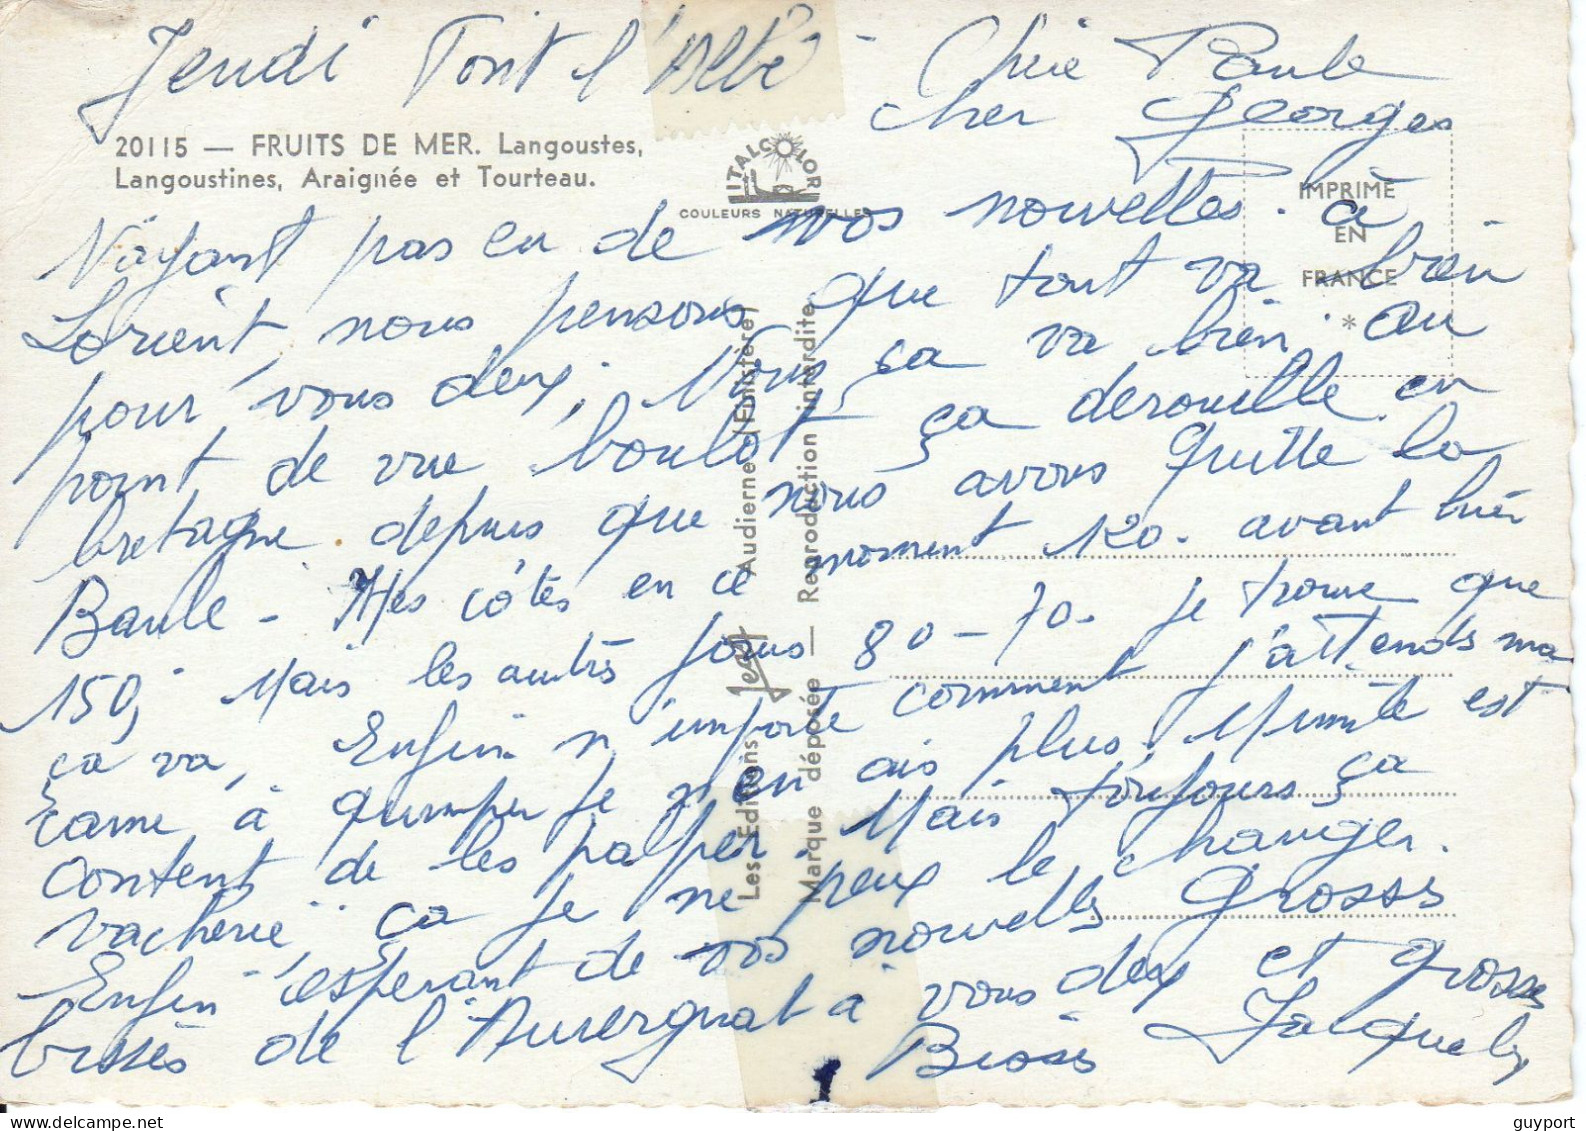 Jeudi Pont l'Abbé - Chère Paule
cher Georges
20115 — FRUITS DE MER. Langoustes,
Langoustines, Araignée et Tourteau.
ITALCOLOR
COULEURS NATURELLES
IMPRIMÉ
EN
FRANCE
*
N'ayant pas eu de vos nouvelles. à
Lorient, nous pensons que tout va bien
pour vous deux. Nous ça va bien. Au
point de vue boulot ça derouille en
bretagne depuis que nous avons quitte la
Baule - Mes côtés en ce moment 120. avant hier
150, Mais les autres jours 80-70. je trouve que
ça va, Enfin n'importe comment j'attends ma
came à quimper je n'en ais plus. Mimile est
content de les palper. Mais toujours ça
vacherie, ça je ne peux le changer.
Enfin espérant de vos nouvelles grosses
bises de l'Auvergnat à vous deux et grosses
Bises Jacqueline
Les Editions Jean Audierne (Finistère)
Marque déposée — Reproduction interdite
guyport